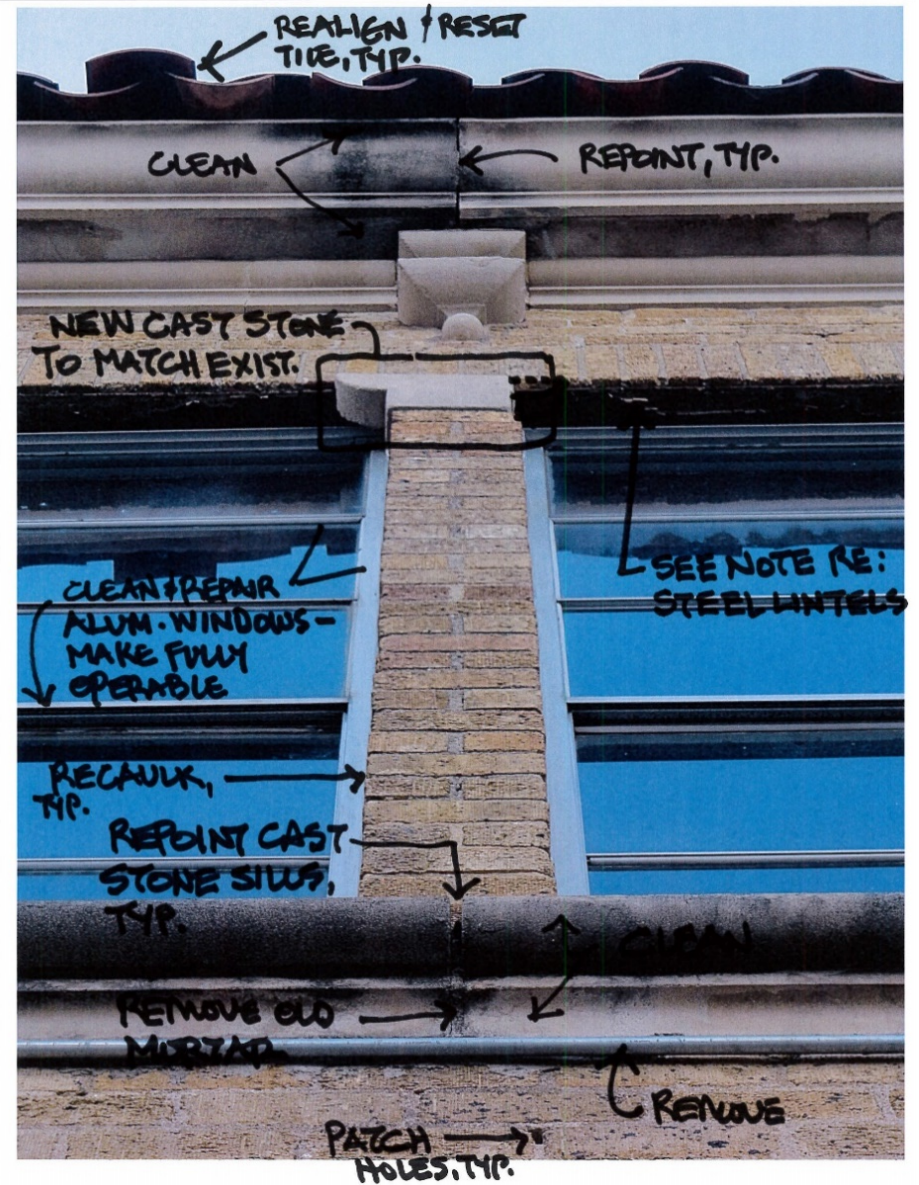 REALIGN & RESET
TILE, TYP.
CLEAN
REPOINT, TYP.
NEW CAST STONE
TO MATCH EXIST.
SEE NOTE RE:
STEEL LINTELS
CLEAN & REPAIR
ALUM. WINDOWS -
MAKE FULLY
OPERABLE
RECAULK,
TYP.
REPOINT CAST
STONE SILLS,
TYP.
CLEAN
REMOVE OLD
MORTAR
REMOVE
PATCH
HOLES, TYP.